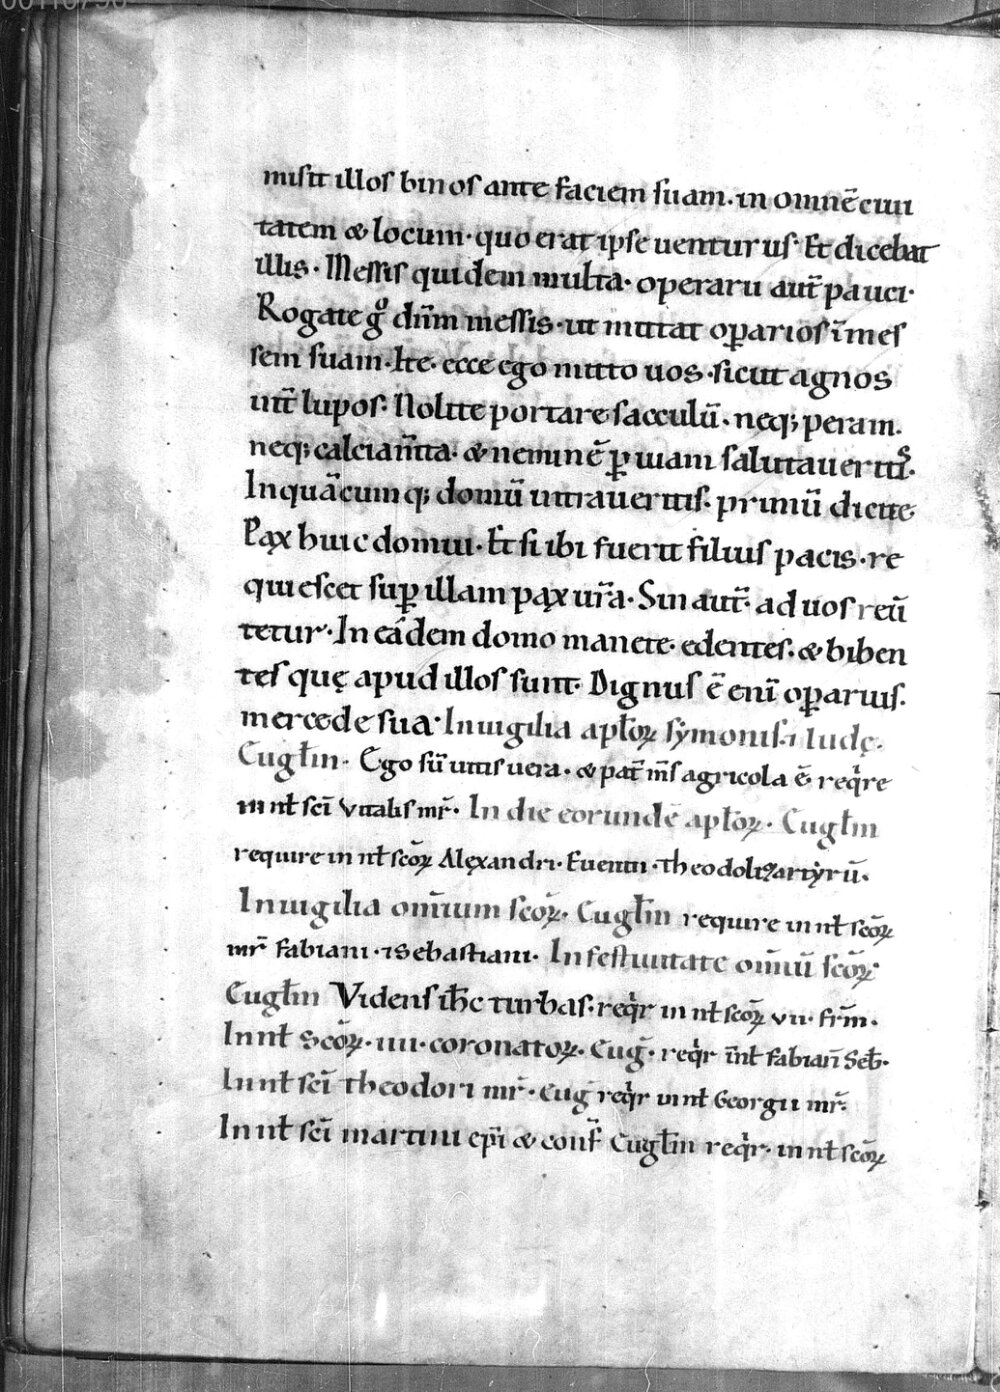 misit illos binos ante faciem suam. in omnē ciui
tatem & locum· quo erat ipse uenturus· Et dicebat
illis· Messis quidem multa· operarii aut̄ pauci·
Rogate gͦ dn̄m messis· ut mittat oꝑarios ī mes
sem suam· Ite· ecce ego mitto uos· sicut agnos
int̄ lupos· Nolite portare sacculū· neq; peram.
neq; calciam̄ta· & neminē ꝑ uiam salutaueritis·
In quācumq; domū intraueritis· primū dicite·
Pax huic domui· Et si ibi fuerit filius pacis· re
quiescet suꝑ illam pax ur̄a· Sin aut̄· ad uos reū
tetur· In eādem domo manete· edentes· & biben
tes quę apud illos sunt· Dignus ē enī oꝑarius·
mercede sua· In uigilia apl̄oꝝ symonis· ⁊ Iudę·
Euḡlm· Ego sū uitis uera· & pat̄ m̄s agricola ē· reqͥre
in nt̄ sc̄i Vitalis mr̄· In die eorundē apl̄oꝝ· Euḡlm
require in nt̄ sc̄oꝝ Alexandri· Euentii· Theodoli martyrū·
In uigilia om̄ium sc̄oꝝ· Euḡlm require in nt̄ sc̄oꝝ
mr̄ fabiani· ⁊ Sebastiani· In festiuitate om̄iū sc̄oꝝ
Euḡlm Videns ih̄c turbas· reqͥr in nt̄ sc̄oꝝ vii· fr̄m·
In nt̄ Sc̄oꝝ· iiii· coronatoꝝ· Eug̅· reqͥr ī nt̄ fabiani Seb̄·
In nt̄ sc̄i Theodori mr̄· Eug̅ reqͥr in nt̄ Georgii mr̄·
In nt̄ sc̄i martini ep̄i & conf̄ Euḡlm reqͥr· in nt̄ sc̄oꝝ